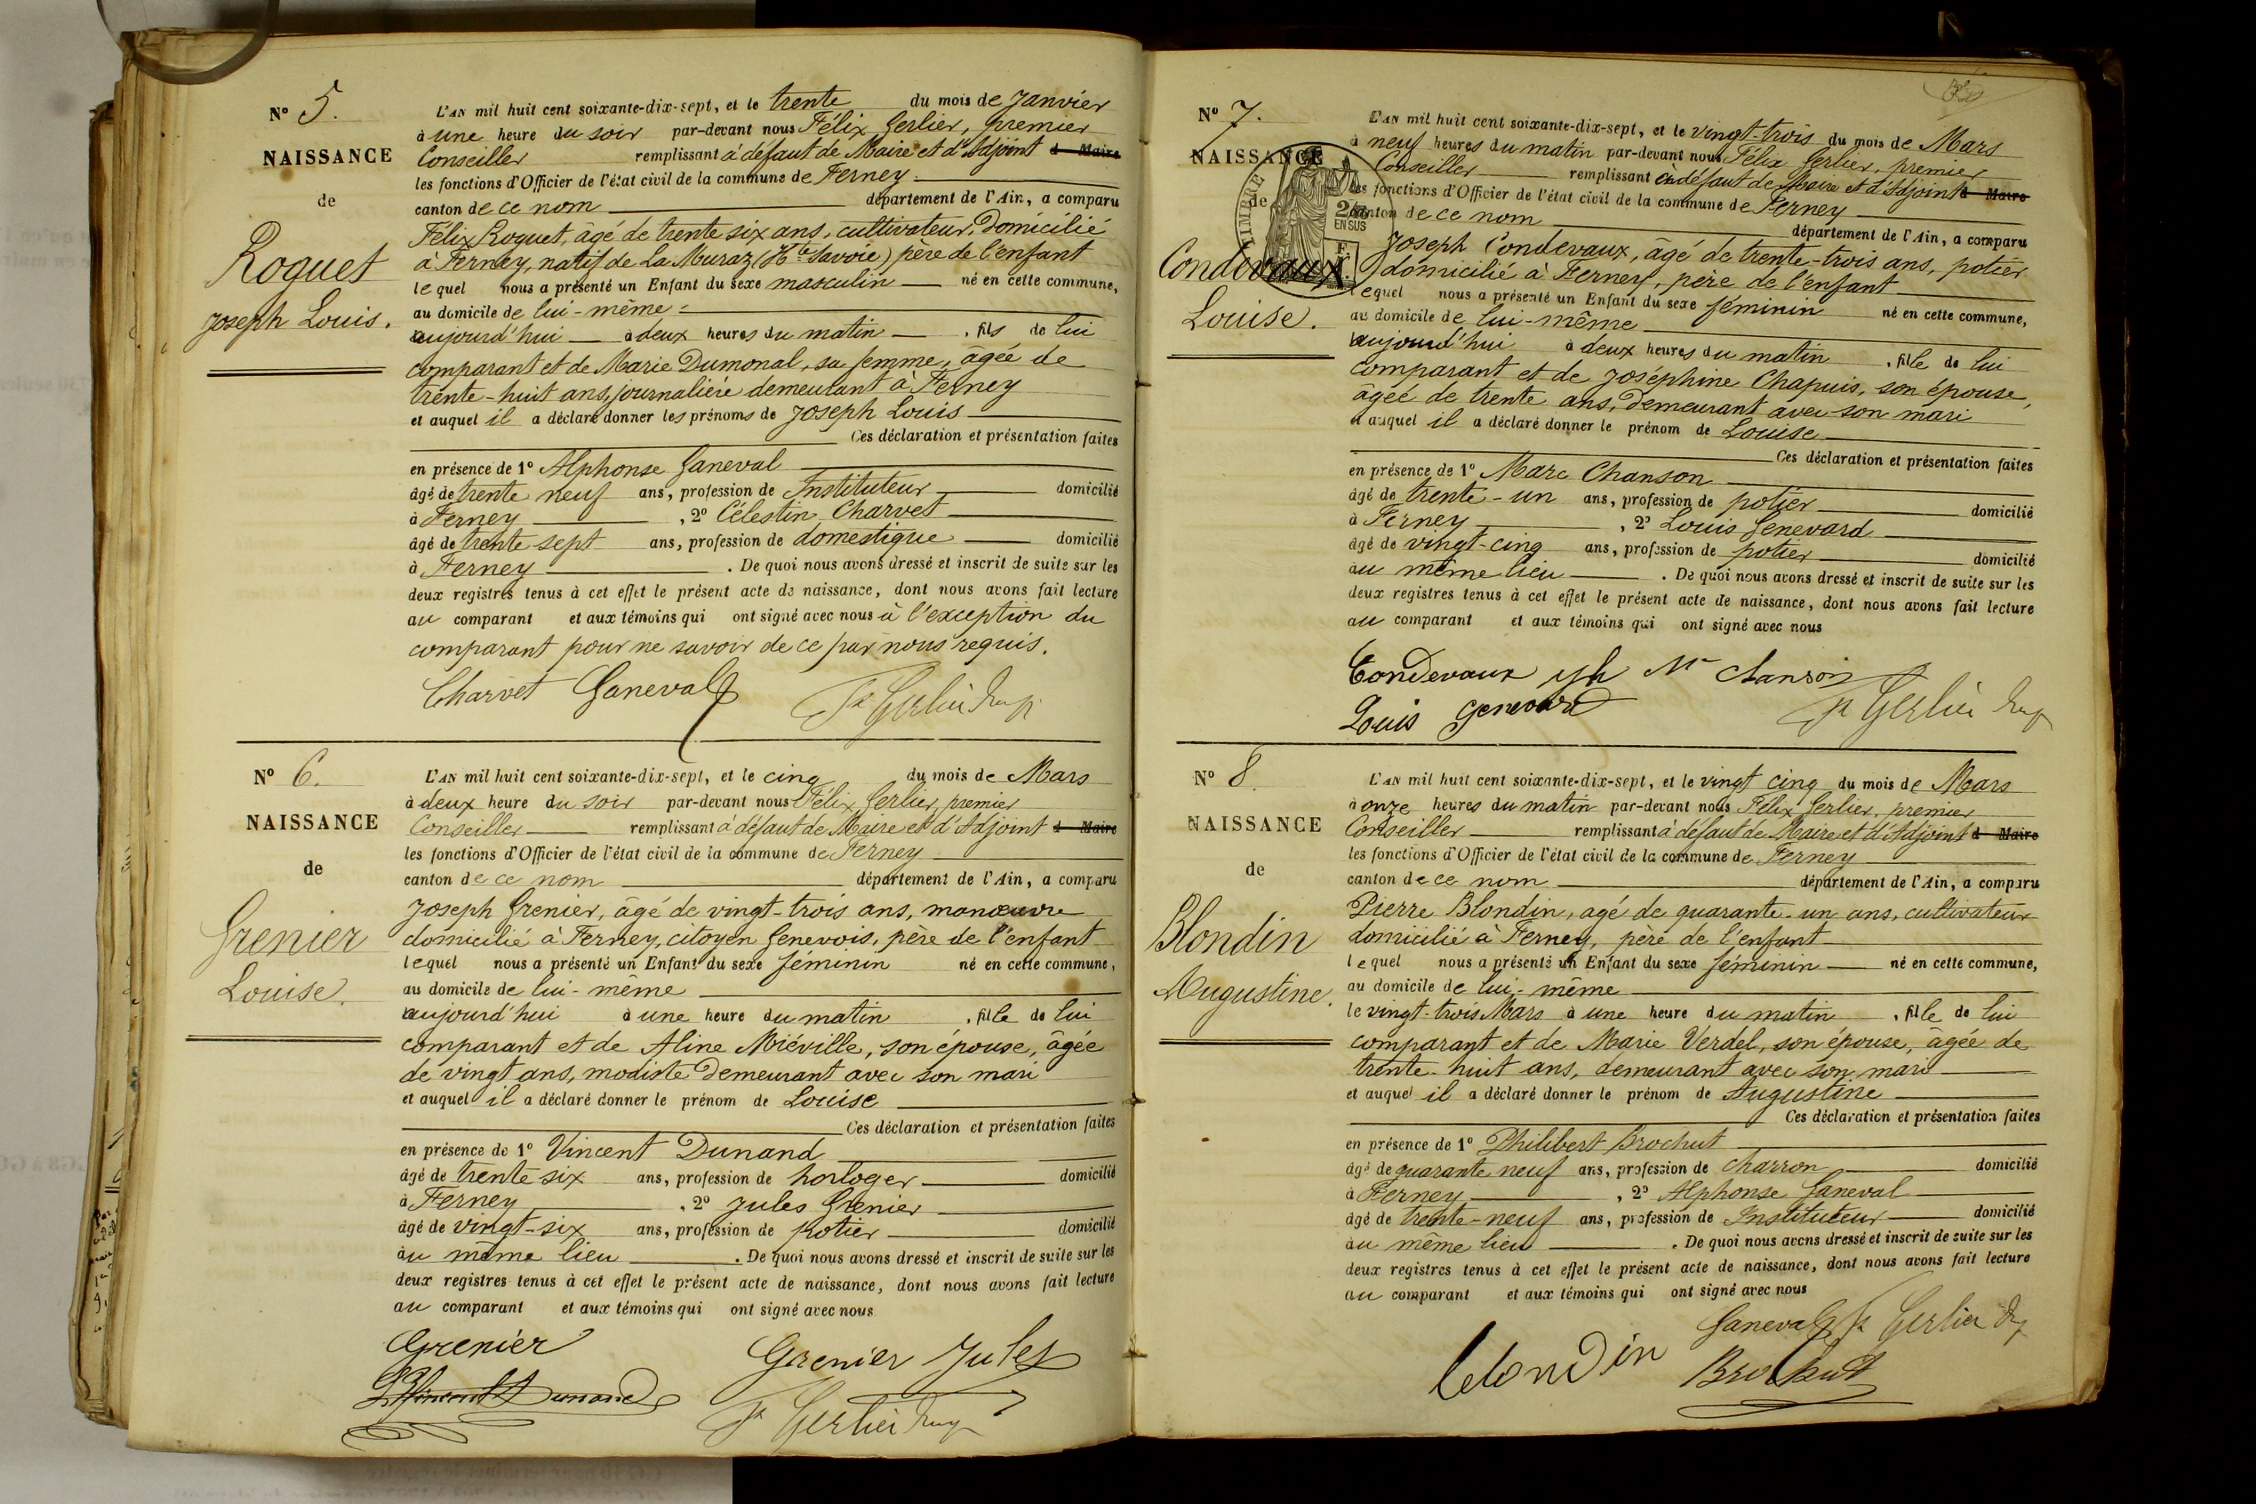 N° 5.
NAISSANCE
de
Roguet
Joseph Louis.
L'AN mil huit cent soixante-dix-sept, et le trente du mois de Janvier
à une heure du soir par-devant nous Félix Gerlier, premier
Conseiller remplissant à défaut de Maire et d'Adjoint d Maire
les fonctions d'Officier de l'état civil de la commune de Ferney
canton de ce nom département de l'Ain, a comparu
Félix Roguet, âgé de trente six ans, cultivateur, domicilié
à Ferney, natif de La Muraz (Hte Savoie) père de l'enfant
lequel nous a présenté un Enfant du sexe masculin né en cette commune,
au domicile de lui-même
aujourd'hui à deux heures du matin, fils de lui
comparant et de Marie Dumonal, sa femme, âgée de
trente-huit ans, journalière demeurant à Ferney
et auquel il a déclaré donner les prénoms de Joseph Louis
Ces déclaration et présentation faites
en présence de 1° Alphonse Ganeval
âgé de trente neuf ans, profession de Instituteur domicilié
à Ferney, 2° Célestin Charvet
âgé de trente sept ans, profession de domestique domicilié
à Ferney. De quoi nous avons dressé et inscrit de suite sur les
deux registres tenus à cet effet le présent acte de naissance, dont nous avons fait lecture
au comparant et aux témoins qui ont signé avec nous à l'exception du
comparant pour ne savoir de ce par nous requis.
Charvet Ganeval
Fx Gerlier
N° 6.
NAISSANCE
de
Grenier
Louise.
L'AN mil huit cent soixante-dix-sept, et le cinq du mois de Mars
à deux heure du soir par-devant nous Félix Gerlier, premier
Conseiller remplissant à défaut de Maire et d'Adjoint d Maire
les fonctions d'Officier de l'état civil de la commune de Ferney
canton de ce nom département de l'Ain, a comparu
Joseph Grenier, âgé de vingt-trois ans, manœuvre
domicilié à Ferney, citoyen Genevois, père de l'enfant
lequel nous a présenté un Enfant du sexe féminin né en cette commune,
au domicile de lui-même
aujourd'hui à une heure du matin, fille de lui
comparant et de Aline Miéville, son épouse, âgée
de vingt ans, modiste demeurant avec son mari
et auquel il a déclaré donner le prénom de Louise
Ces déclaration et présentation faites
en présence de 1° Vincent Dunand
âgé de trente six ans, profession de horloger domicilié
à Ferney, 2° Jules Grenier
âgé de vingt-six ans, profession de potier domicilié
au même lieu. De quoi nous avons dressé et inscrit de suite sur les
deux registres tenus à cet effet le présent acte de naissance, dont nous avons fait lecture
au comparant et aux témoins qui ont signé avec nous
Grenier
Grenier Jules
Vincent Dunand
Fx Gerlier
N° 7.
NAISSANCE
de
Condevaux
Louise.
TIMBRE
2/10
EN SUS
L'AN mil huit cent soixante-dix-sept, et le vingt-trois du mois de Mars
à neuf heures du matin par-devant nous Félix Gerlier, premier
Conseiller remplissant à défaut de Maire et d'Adjoint d Maire
les fonctions d'Officier de l'état civil de la commune de Ferney
canton de ce nom département de l'Ain, a comparu
Joseph Condevaux, âgé de trente-trois ans, potier
domicilié à Ferney, père de l'enfant
lequel nous a présenté un Enfant du sexe féminin né en cette commune,
au domicile de lui-même
aujourd'hui à deux heures du matin, fille de lui
comparant et de Joséphine Chapuis, son épouse,
âgée de trente ans, demeurant avec son mari
et auquel il a déclaré donner le prénom de Louise
Ces déclaration et présentation faites
en présence de 1° Marc Chanson
âgé de trente-un ans, profession de potier domicilié
à Ferney, 2° Louis Genevard
âgé de vingt-cinq ans, profession de potier domicilié
au même lieu. De quoi nous avons dressé et inscrit de suite sur les
deux registres tenus à cet effet le présent acte de naissance, dont nous avons fait lecture
au comparant et aux témoins qui ont signé avec nous
Condevaux jh Mc Chanson
Louis Genevard
Fx Gerlier
N° 8.
NAISSANCE
de
Blondin
Augustine.
L'AN mil huit cent soixante-dix-sept, et le vingt cinq du mois de Mars
à onze heures du matin par-devant nous Félix Gerlier, premier
Conseiller remplissant à défaut de Maire et d'Adjoint d Maire
les fonctions d'Officier de l'état civil de la commune de Ferney
canton de ce nom département de l'Ain, a comparu
Pierre Blondin, âgé de quarante-un ans, cultivateur
domicilié à Ferney, père de l'enfant
lequel nous a présenté un Enfant du sexe féminin né en cette commune,
au domicile de lui-même
le vingt-trois Mars à une heure du matin, fille de lui
comparant et de Marie Verdel, son épouse, âgée de
trente-huit ans, demeurant avec son mari
et auquel il a déclaré donner le prénom de Augustine
Ces déclaration et présentation faites
en présence de 1° Philibert Brochut
âgé de quarante neuf ans, profession de charron domicilié
à Ferney, 2° Alphonse Ganeval
âgé de trente-neuf ans, profession de Instituteur domicilié
au même lieu. De quoi nous avons dressé et inscrit de suite sur les
deux registres tenus à cet effet le présent acte de naissance, dont nous avons fait lecture
au comparant et aux témoins qui ont signé avec nous
Ganeval Fx Gerlier
blondin Brochut